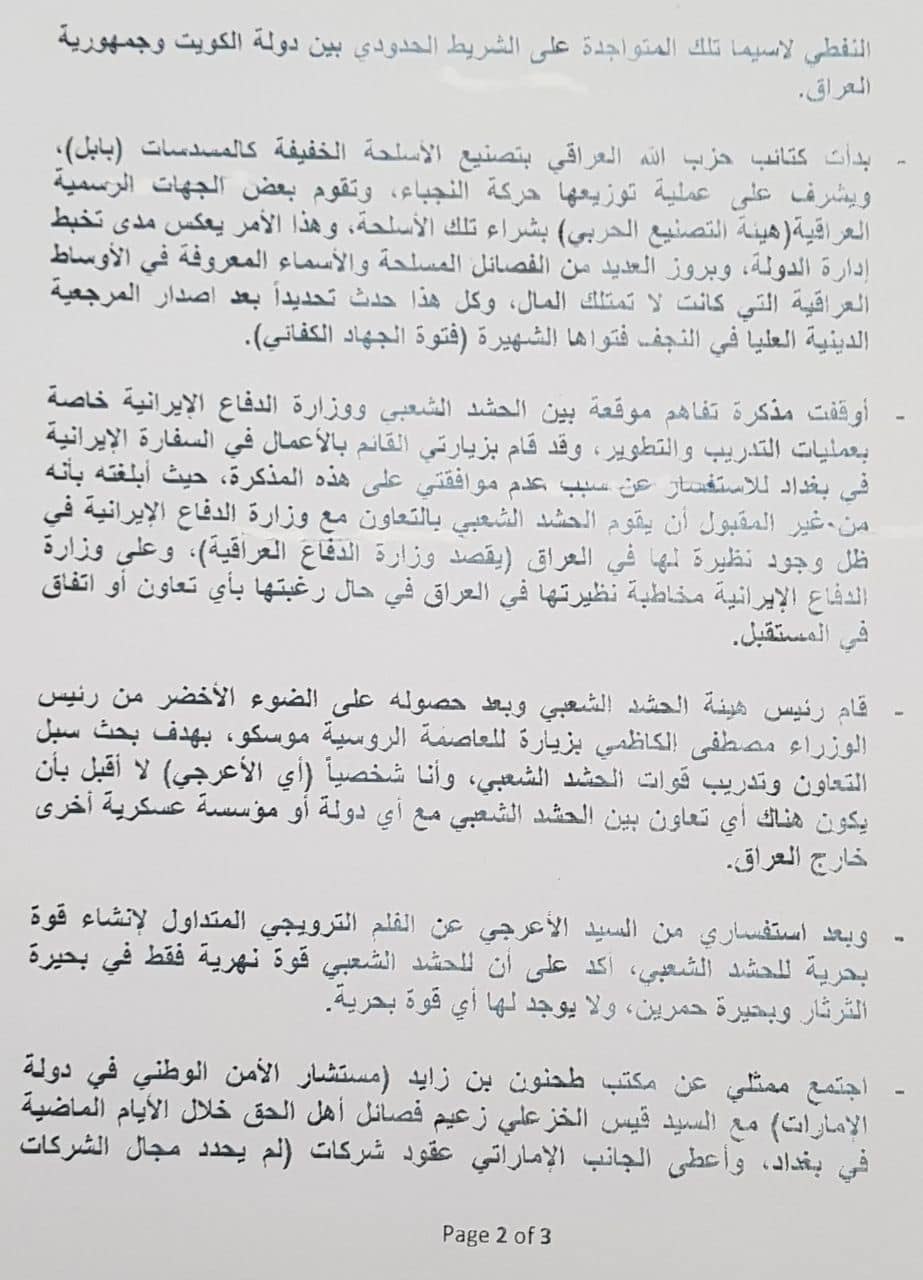 النفطي لاسيما تلك المتواجدة على الشريط الحدودي بين دولة الكويت وجمهورية
العراق.
- بدأت كتائب حزب الله العراقي بتصنيع الأسلحة الخفيفة كالمسدسات (بابل)،
ويشرف على عملية توزيعها حركة النجباء، وتقوم بعض الجهات الرسمية
العراقية(هيئة التصنيع الحربي) بشراء تلك الأسلحة، وهذا الأمر يعكس مدى تخبط
إدارة الدولة، وبروز العديد من الفصائل المسلحة والأسماء المعروفة في الأوساط
العراقية التي كانت لا تمتلك المال، وكل هذا حدث تحديداً بعد اصدار المرجعية
الدينية العليا في النجف فتواها الشهيرة (فتوة الجهاد الكفائي).
- أوقفت مذكرة تفاهم موقعة بين الحشد الشعبي ووزارة الدفاع الإيرانية خاصة
بعمليات التدريب والتطوير، وقد قام بزيارتي القائم بالأعمال في السفارة الإيرانية
في بغداد للاستفسار عن سبب عدم موافقتي على هذه المذكرة، حيث أبلغته بأنه
من غير المقبول أن يقوم الحشد الشعبي بالتعاون مع وزارة الدفاع الإيرانية في
ظل وجود نظيرة لها في العراق (يقصد وزارة الدفاع العراقية)، وعلى وزارة
الدفاع الإيرانية مخاطبة نظيرتها في العراق في حال رغبتها بأي تعاون أو اتفاق
في المستقبل.
- قام رئيس هيئة الحشد الشعبي وبعد حصوله على الضوء الأخضر من رئيس
الوزراء مصطفى الكاظمي بزيارة للعاصمة الروسية موسكو، بهدف بحث سبل
التعاون وتدريب قوات الحشد الشعبي، وأنا شخصياً (أي الأعرجي) لا أقبل بأن
يكون هناك أي تعاون بين الحشد الشعبي مع أي دولة أو مؤسسة عسكرية أخرى
خارج العراق.
- وبعد استفساري من السيد الأعرجي عن الفلم الترويجي المتداول لإنشاء قوة
بحرية للحشد الشعبي، أكد على أن للحشد الشعبي قوة نهرية فقط في بحيرة
الثرثار وبحيرة حمرين، ولا يوجد لها أي قوة بحرية.
- اجتمع ممثلي عن مكتب طحنون بن زايد (مستشار الأمن الوطني في دولة
الإمارات) مع السيد قيس الخزعلي زعيم فصائل أهل الحق خلال الأيام الماضية
في بغداد، وأعطى الجانب الإماراتي عقود شركات (لم يحدد مجال الشركات
Page 2 of 3